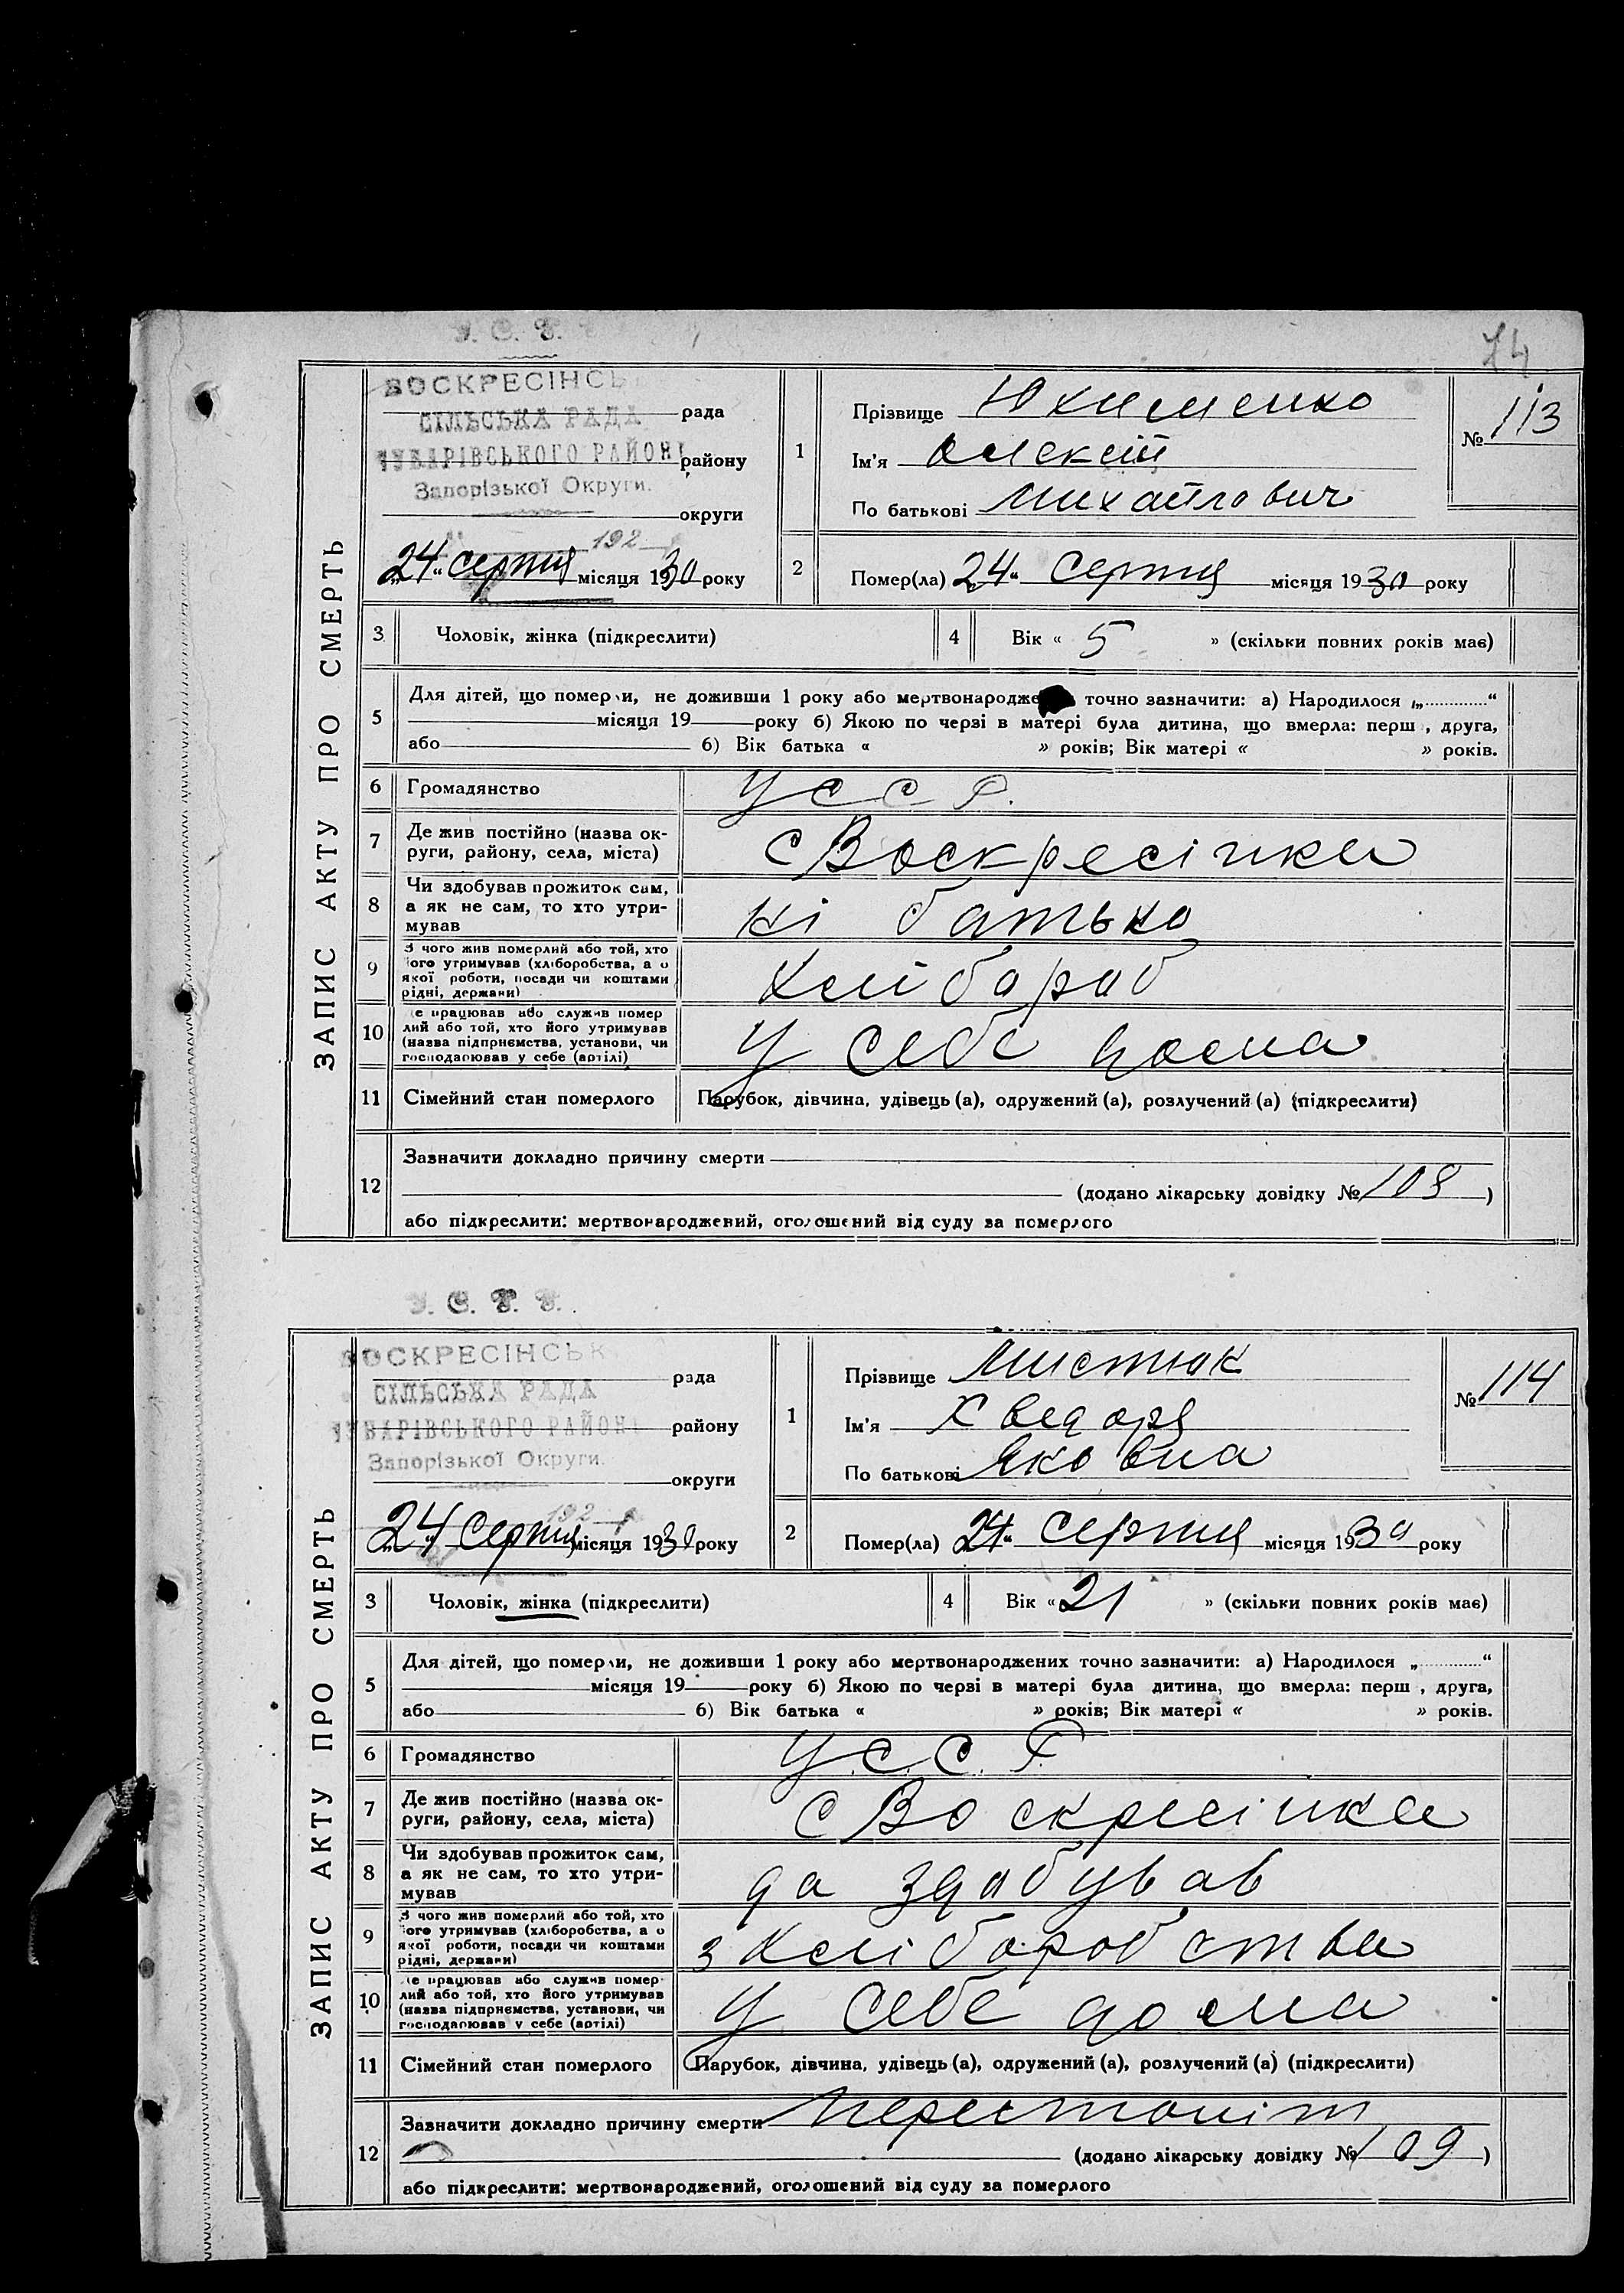 74
У. С. Р. Р.
ЗАПИС АКТУ ПРО СМЕРТЬ
ВОСКРЕСІНСЬ
СІЛЬСЬКА РАДА рада
ЧУБАРІВСЬКОГО РАЙОНУ району
Запорізької Округи.
округи
192
„24“ серпня місяця 1930 року
1
Прізвище Юхименко
Ім'я Олексій
По батькові Михайлович
№ 113
2 Помер(ла) „24“ серпня місяця 1930 року
3 Чоловік, жінка (підкреслити)
4 Вік « 5 » (скільки повних років має)
5
Для дітей, що померли, не доживши 1 року або мертвонародже точно зазначити: а) Народилося „ “
місяця 19 року б) Якою по черзі в матері була дитина, що вмерла: перш , друга,
або 6) Вік батька « » років; Вік матері « » років.
6 Громадянство УССР.
7 Де жив постійно (назва ок-
руги, району, села, міста) с Воскресінка
8 Чи здобував прожиток сам,
а як не сам, то хто утри-
мував ні батько
9 З чого жив померлий або той, хто
його утримував (хліборобства, а о
якої роботи, посади чи коштами
рідні, держави) Хлібороб
10 Де працював або служив помер
лий або той, хто його утримував
(назва підприємства, установи, чи
господарював у себе (артілі) у себе дома
11 Сімейний стан померлого Парубок, дівчина, удівець (а), одружений (а), розлучений (а) (підкреслити)
12
Зазначити докладно причину смерти
(додано лікарську довідку № 108 )
або підкреслити: мертвонароджений, оголошений від суду за померлого
У. С. Р. Р.
ЗАПИС АКТУ ПРО СМЕРТЬ
ВОСКРЕСІНСЬК
рада
СІЛЬСЬКА РАДА
ЧУБАРІВСЬКОГО РАЙОНУ району
Запорізької Округи.
округи
192
„24“ серпня місяця 1930 року
1
Прізвище
Ім'я Хведоря
По батькові Яковвна
№ 114
2 Помер(ла) „24“ серпня місяця 1930 року
3 Чоловік, жінка (підкреслити)
4 Вік « 21 » (скільки повних років має)
5
Для дітей, що померли, не доживши 1 року або мертвонароджених точно зазначити: а) Народилося „ “
місяця 19 року б) Якою по черзі в матері була дитина, що вмерла: перш , друга,
або 6) Вік батька « » років; Вік матері « » років.
6 Громадянство У.С.С.Р.
7 Де жив постійно (назва ок-
руги, району, села, міста) с Воскресінка
8 Чи здобував прожиток сам,
а як не сам, то хто утри-
мував да здобував
9 З чого жив померлий або той, хто
його утримував (хліборобства, а о
якої роботи, посади чи коштами
рідні, держави) з хліборобства
10 Де працював або служив помер
лий або той, хто його утримував
(назва підприємства, установи, чи
господарював у себе (артілі) у себе дома
11 Сімейний стан померлого Парубок, дівчина, удівець (а), одружений (а), розлучений (а) (підкреслити)
12
Зазначити докладно причину смерти Перетоніт
(додано лікарську довідку № 109 )
або підкреслити: мертвонароджений, оголошений від суду за померлого